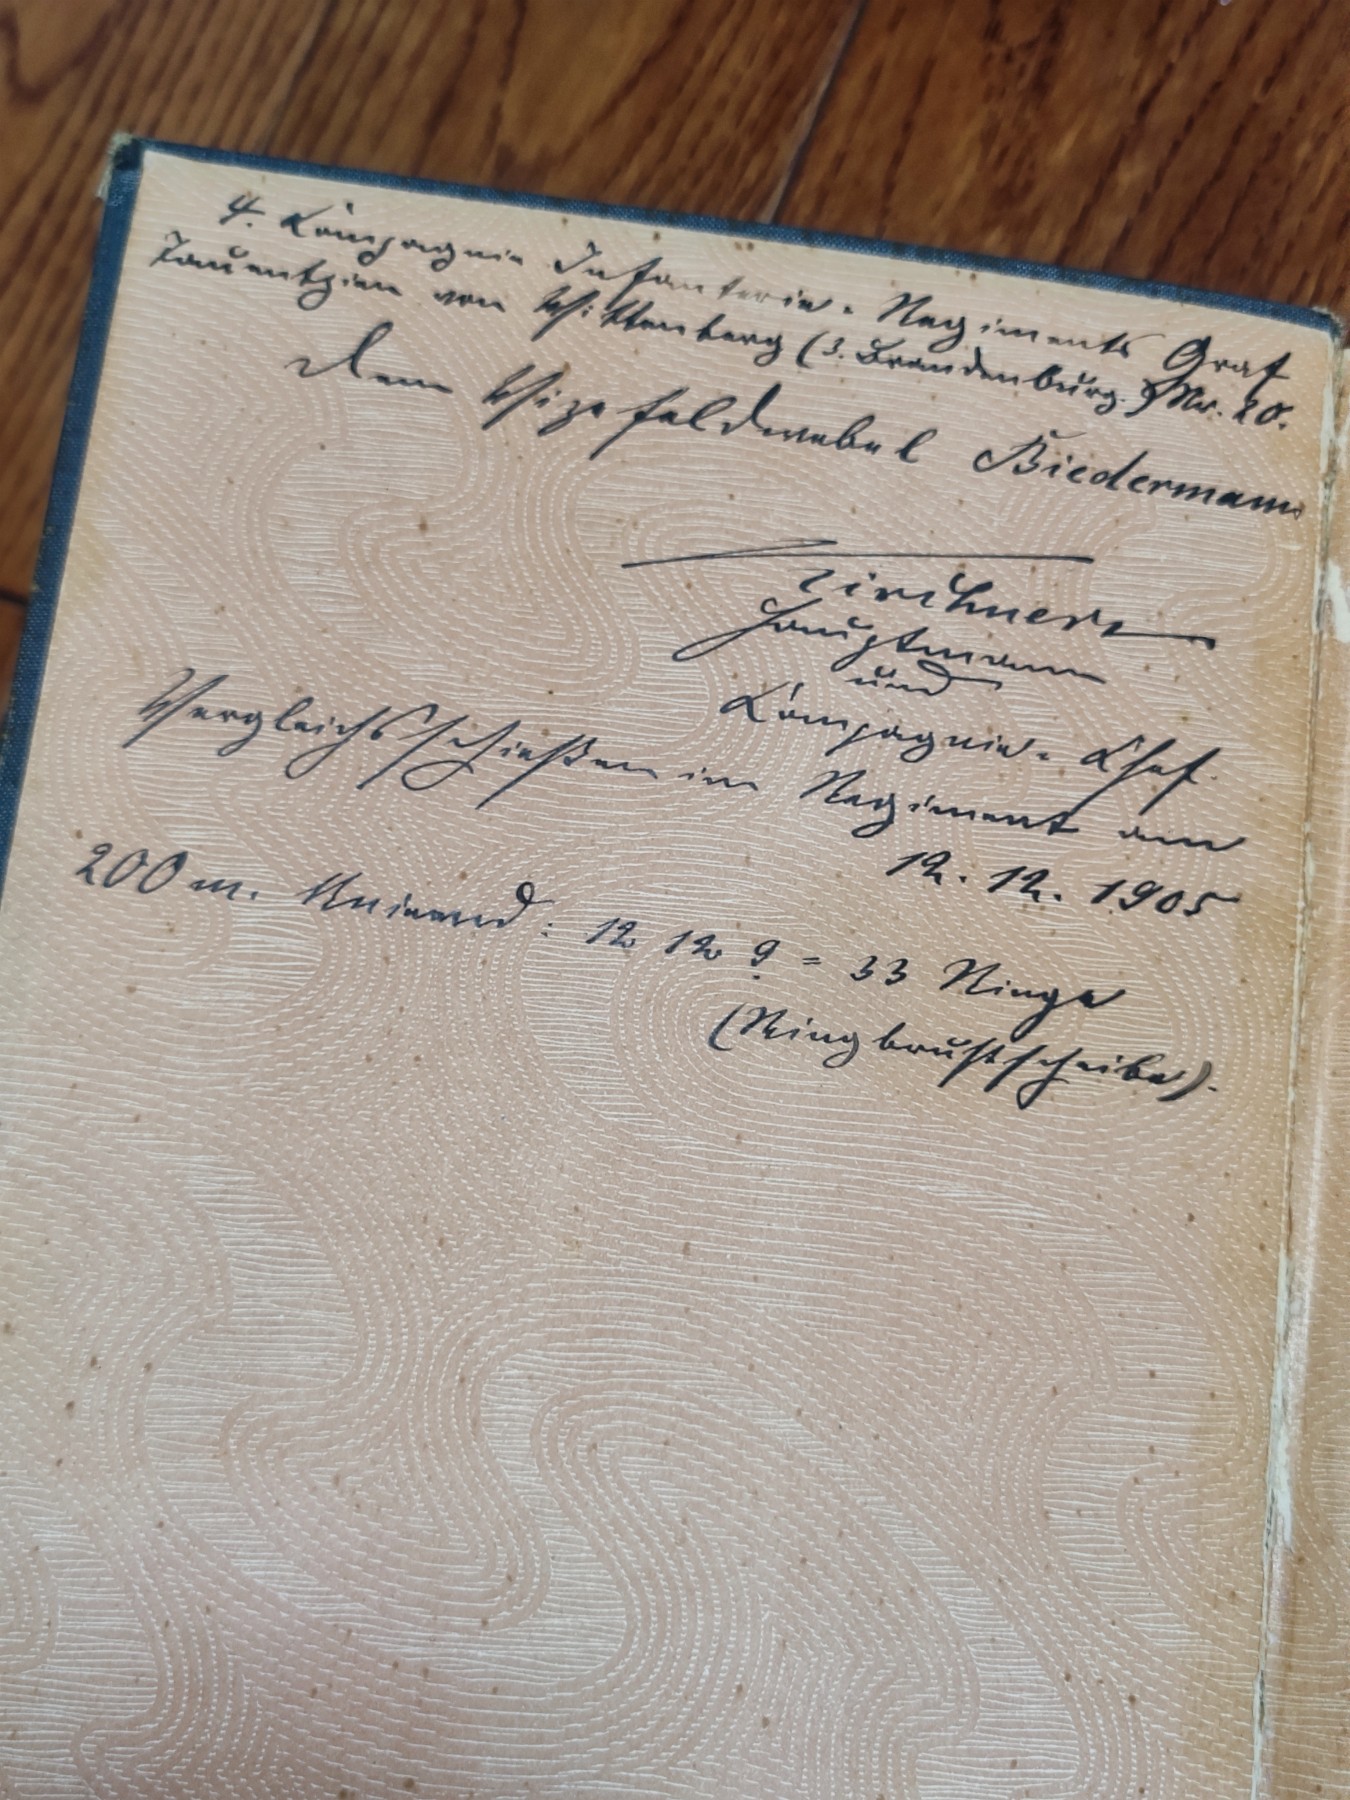 4. Kompagnie Infanterie-Regiments Graf
Tauentzien von Wittenberg (3. Brandenburg.) Nr. 20.
Dem Vizefeldwebel Biedermann
Kirchner
Hauptmann
und
Kompagnie-Chef.
Vergleichsschießen im Regiment am
12. 12. 1905
200 m. Knieend: 12 12 9 = 33 Ringe
(Ringbrustscheibe).